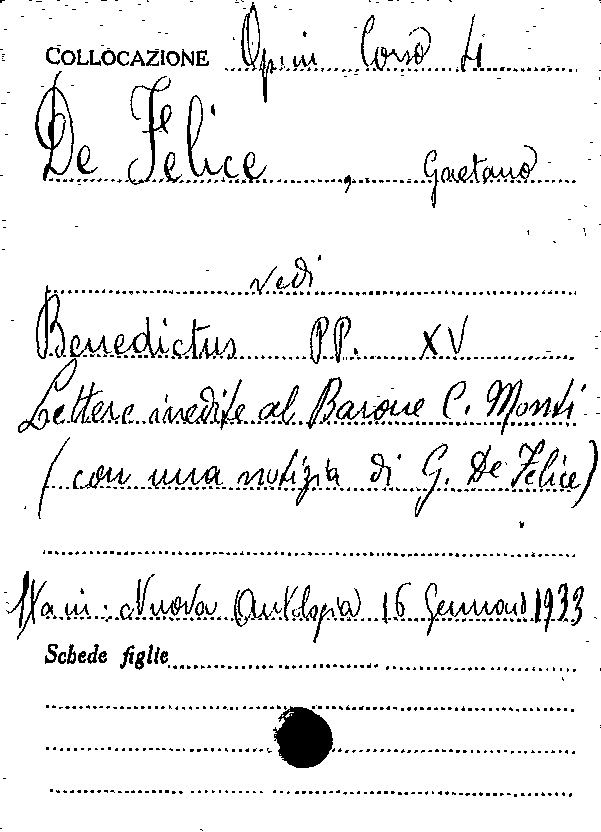 COLLOCAZIONE Opin Corso 4
De Felice, Gaetano
vedi
Benedictus PP. XV
Lettere inedite al Barone C. Monti
(con una notizia di G. De Felice)
in: Nuova Antologia 16 Gennaio 1933
Schede figlie